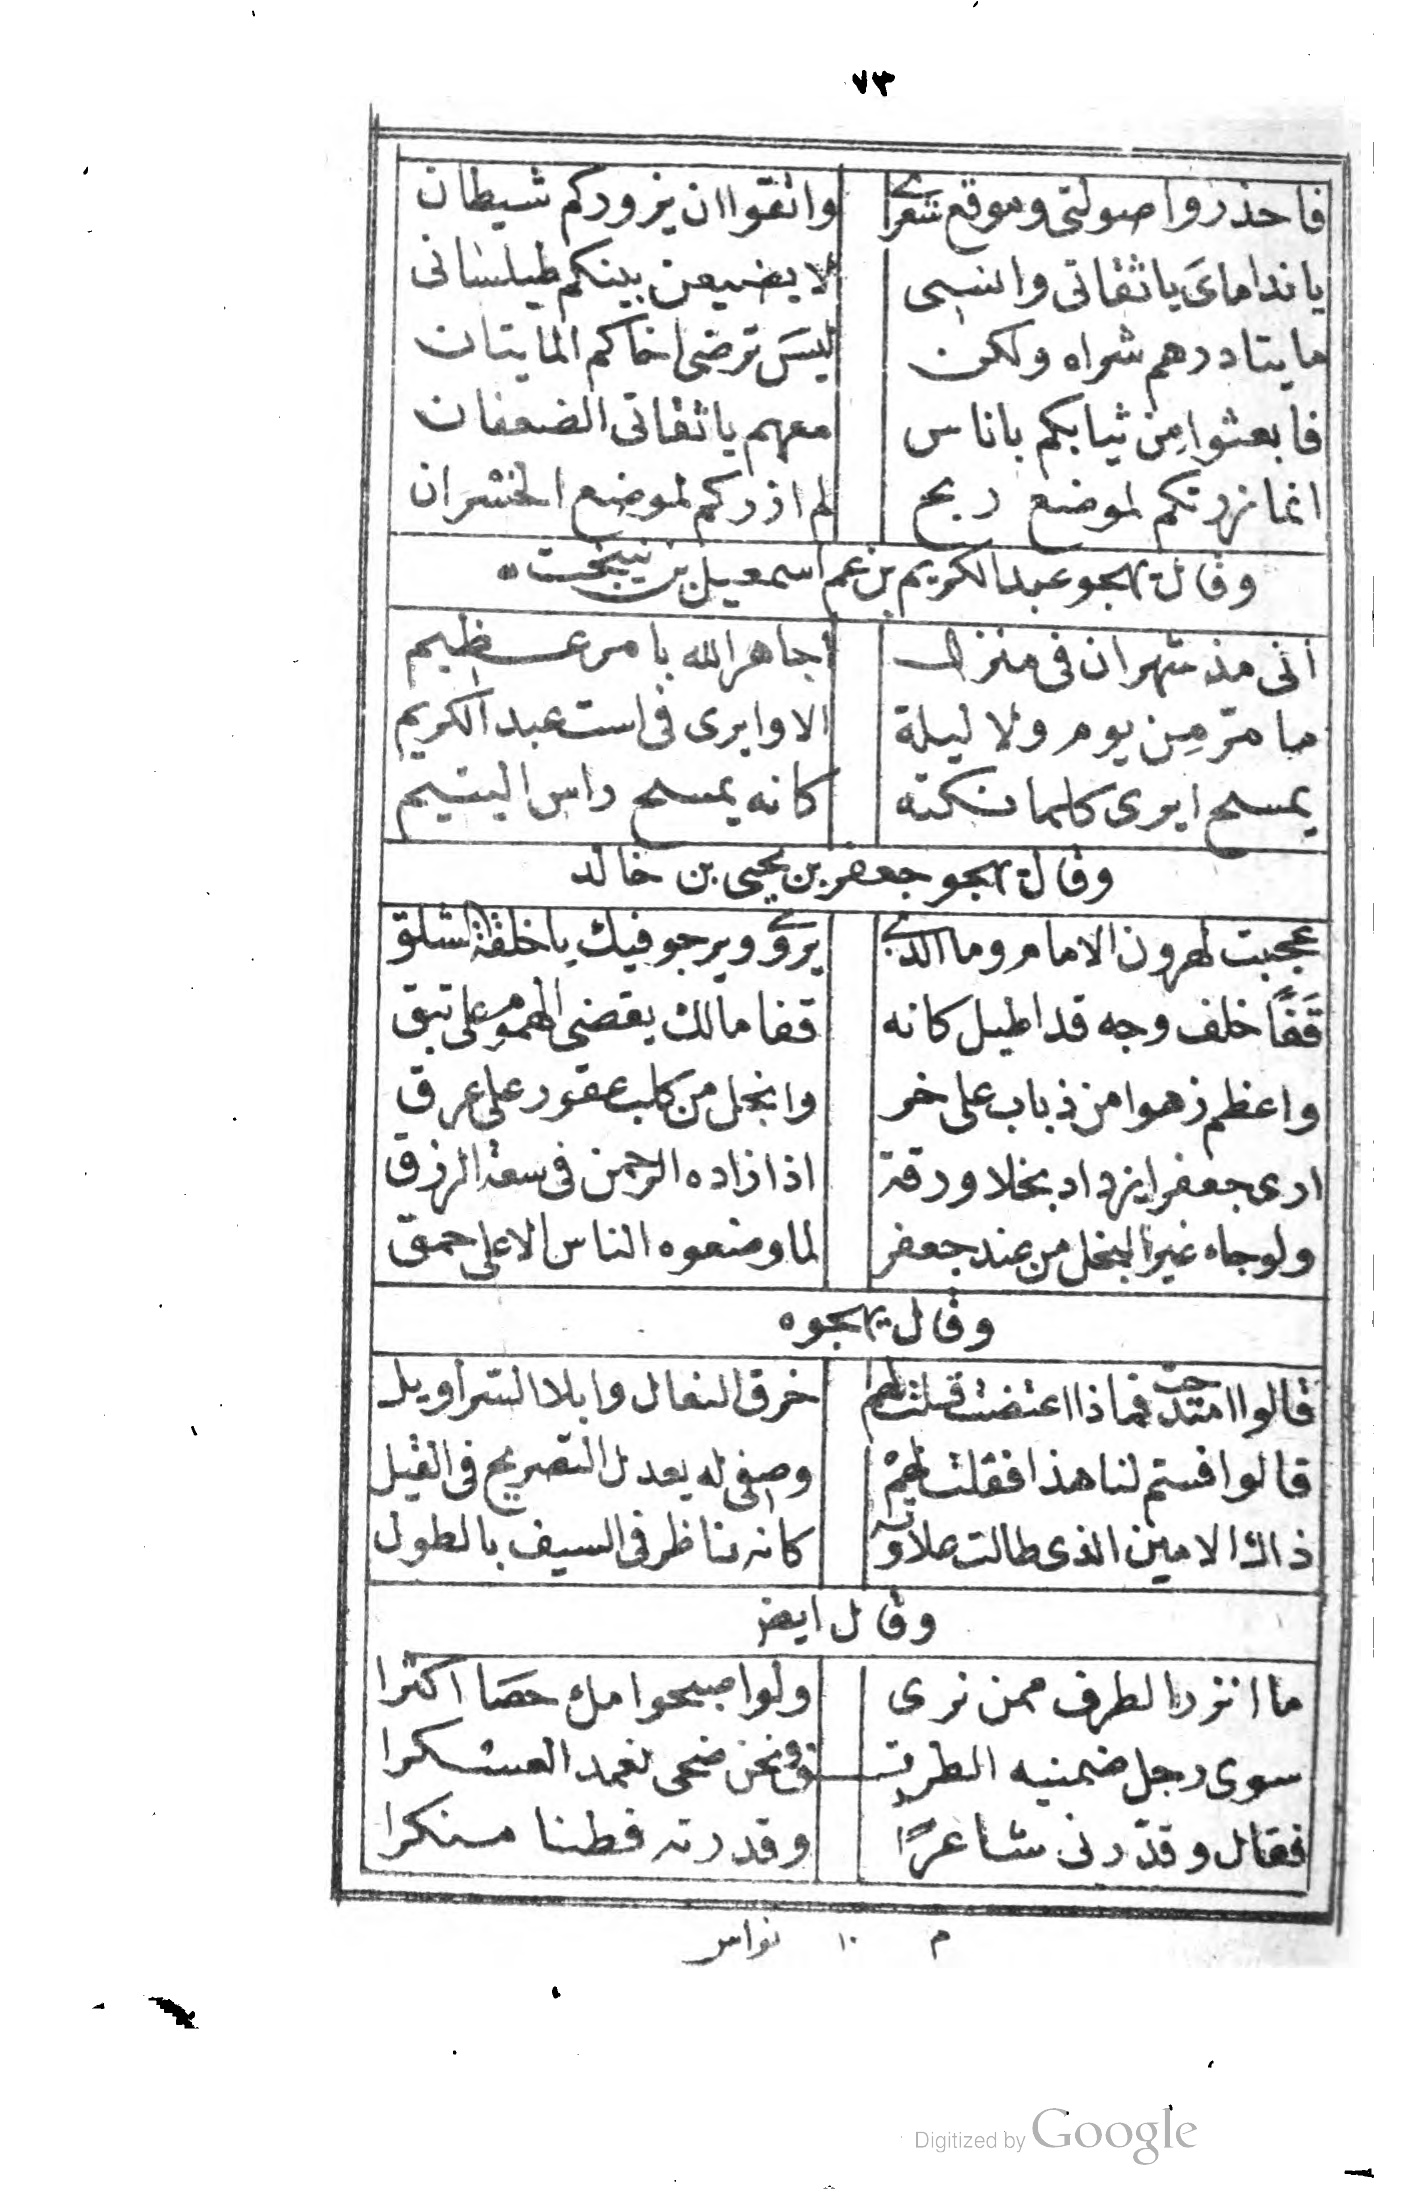 ٧٣
فاحذروا صولتي وموقع شعري واتقوا ان يزوركم شيطان
يا نداماى يا ثقاتي وانسي لا يضيعن بينكم طيلساني
مايتا درهم شراه ولكن ليسَ ترضى اخاكم المايتان
فابعثوا مِن ثيابكم باناس معهم يا ثقاتي الضعفان
انما زرتكم لموضع ربح لم ازركم لموضع الخسران
وقال يهجو عبد الكريم بن عم اسمعيل بن نيبخت ه
اني مذ شهران في منزل اجاهر الله بامر عظيم
ما مرّ مِن يوم ولا ليلة الا وايرى في است عبد الكريم
يمسح ايرى كلما نكته كانه يمسح راس اليتيم
وقال يهجو جعفر بن يحيى بن خالد
عجبت لهرون الامام وما الذي يروي ويرجو فيك يا خلقة السلق
قَفًا خلف وجه قد اطيل كانه قفا مالك يقضى الهموم على تبق
واعظم زهوا من ذباب على خر وابخل من كلب عقور على عرق
ارى جعفرا يزداد بخلا ورقة اذا زاده الرحمن في سعة الرزق
ولو جاه غير البخل من عند جعفر لما وضعوه الناس الا على حمق
وقال يهجوه
قالوا امتدحت فماذا اعتضت قلت لهم خرق النعال وابلا السراويل
قالوا فسم لنا هذا فقلت لهم وصفى له يعدل التصريح في القيل
ذاك الامين الذى طالت علاوته كانه ناظر في السيف بالطول
وقال ايضـ
ما انزر الطرف ممن نرى ولو اصبحوا ملء حصا اكثرا
سوى رجل ضمنيه الطريق ونحن ضحى نعمد العسكرا
فقال وقدّرني شاعرًا وقدرته فطنا منكرا
م ١٠ نواس
Digitized by Google